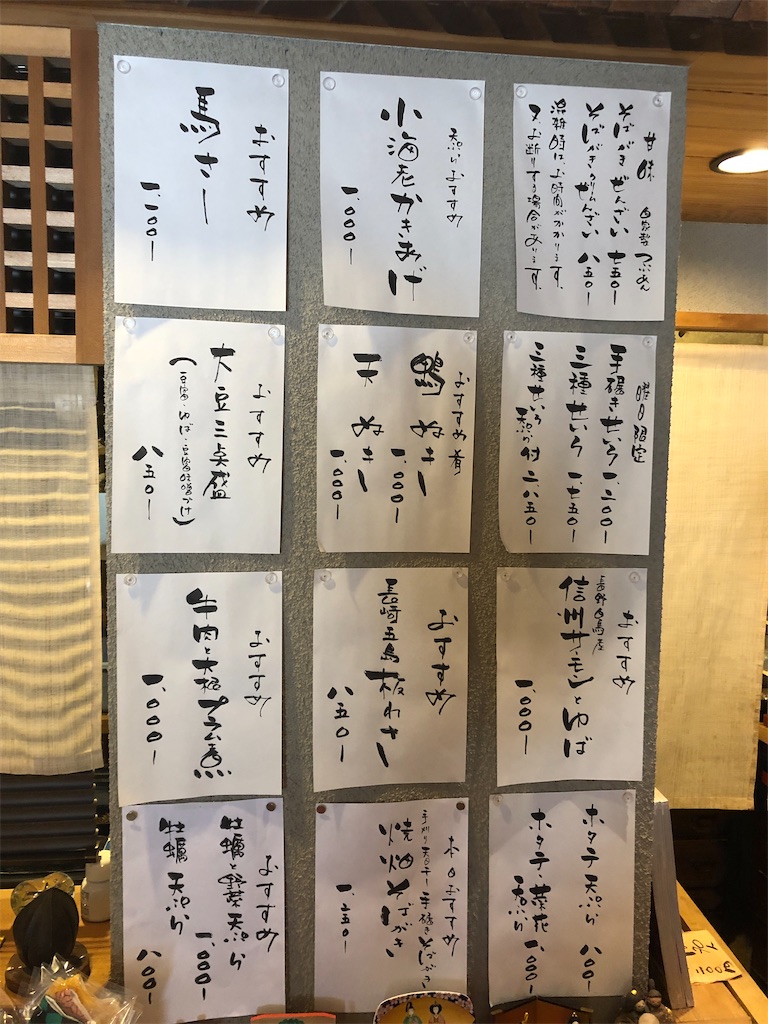 甘味 自家製 つぶあん
そばがき ぜんざい 七五〇ー
そばがきクリームぜんざい 八五〇ー
混雑時は、お時間がかかります。
又、お断りする場合があります。
天ぷらおすすめ
小海老かきあげ
一、〇〇〇ー
おすすめ
馬さし
一、二〇〇ー
曜日限定
手碾きせいろ 一、二〇〇ー
三種せいろ 一、七五〇ー
三種せいろ 天ぷら付 二、八五〇ー
おすすめ肴
鴨ぬき 一、〇〇〇ー
天ぬき 一、〇〇〇ー
おすすめ
大豆三点盛
(豆富・ゆば・豆富味噌づけ)
八五〇ー
おすすめ
長野白馬産
信州サーモンとゆば
一、〇〇〇ー
おすすめ
長崎五島板わさ
八五〇ー
おすすめ
牛肉と大根プラム煮
一、〇〇〇ー
ホタテ天ぷら 八〇〇ー
ホタテ・菜花
天ぷら 一、〇〇〇ー
本日おすすめ
手刈り天日干し 手碾きそばがき
焼畑そばがき
一、二五〇ー
おすすめ
牡蠣と野菜天ぷら
一、〇〇〇ー
牡蠣 天ぷら
八〇〇ー